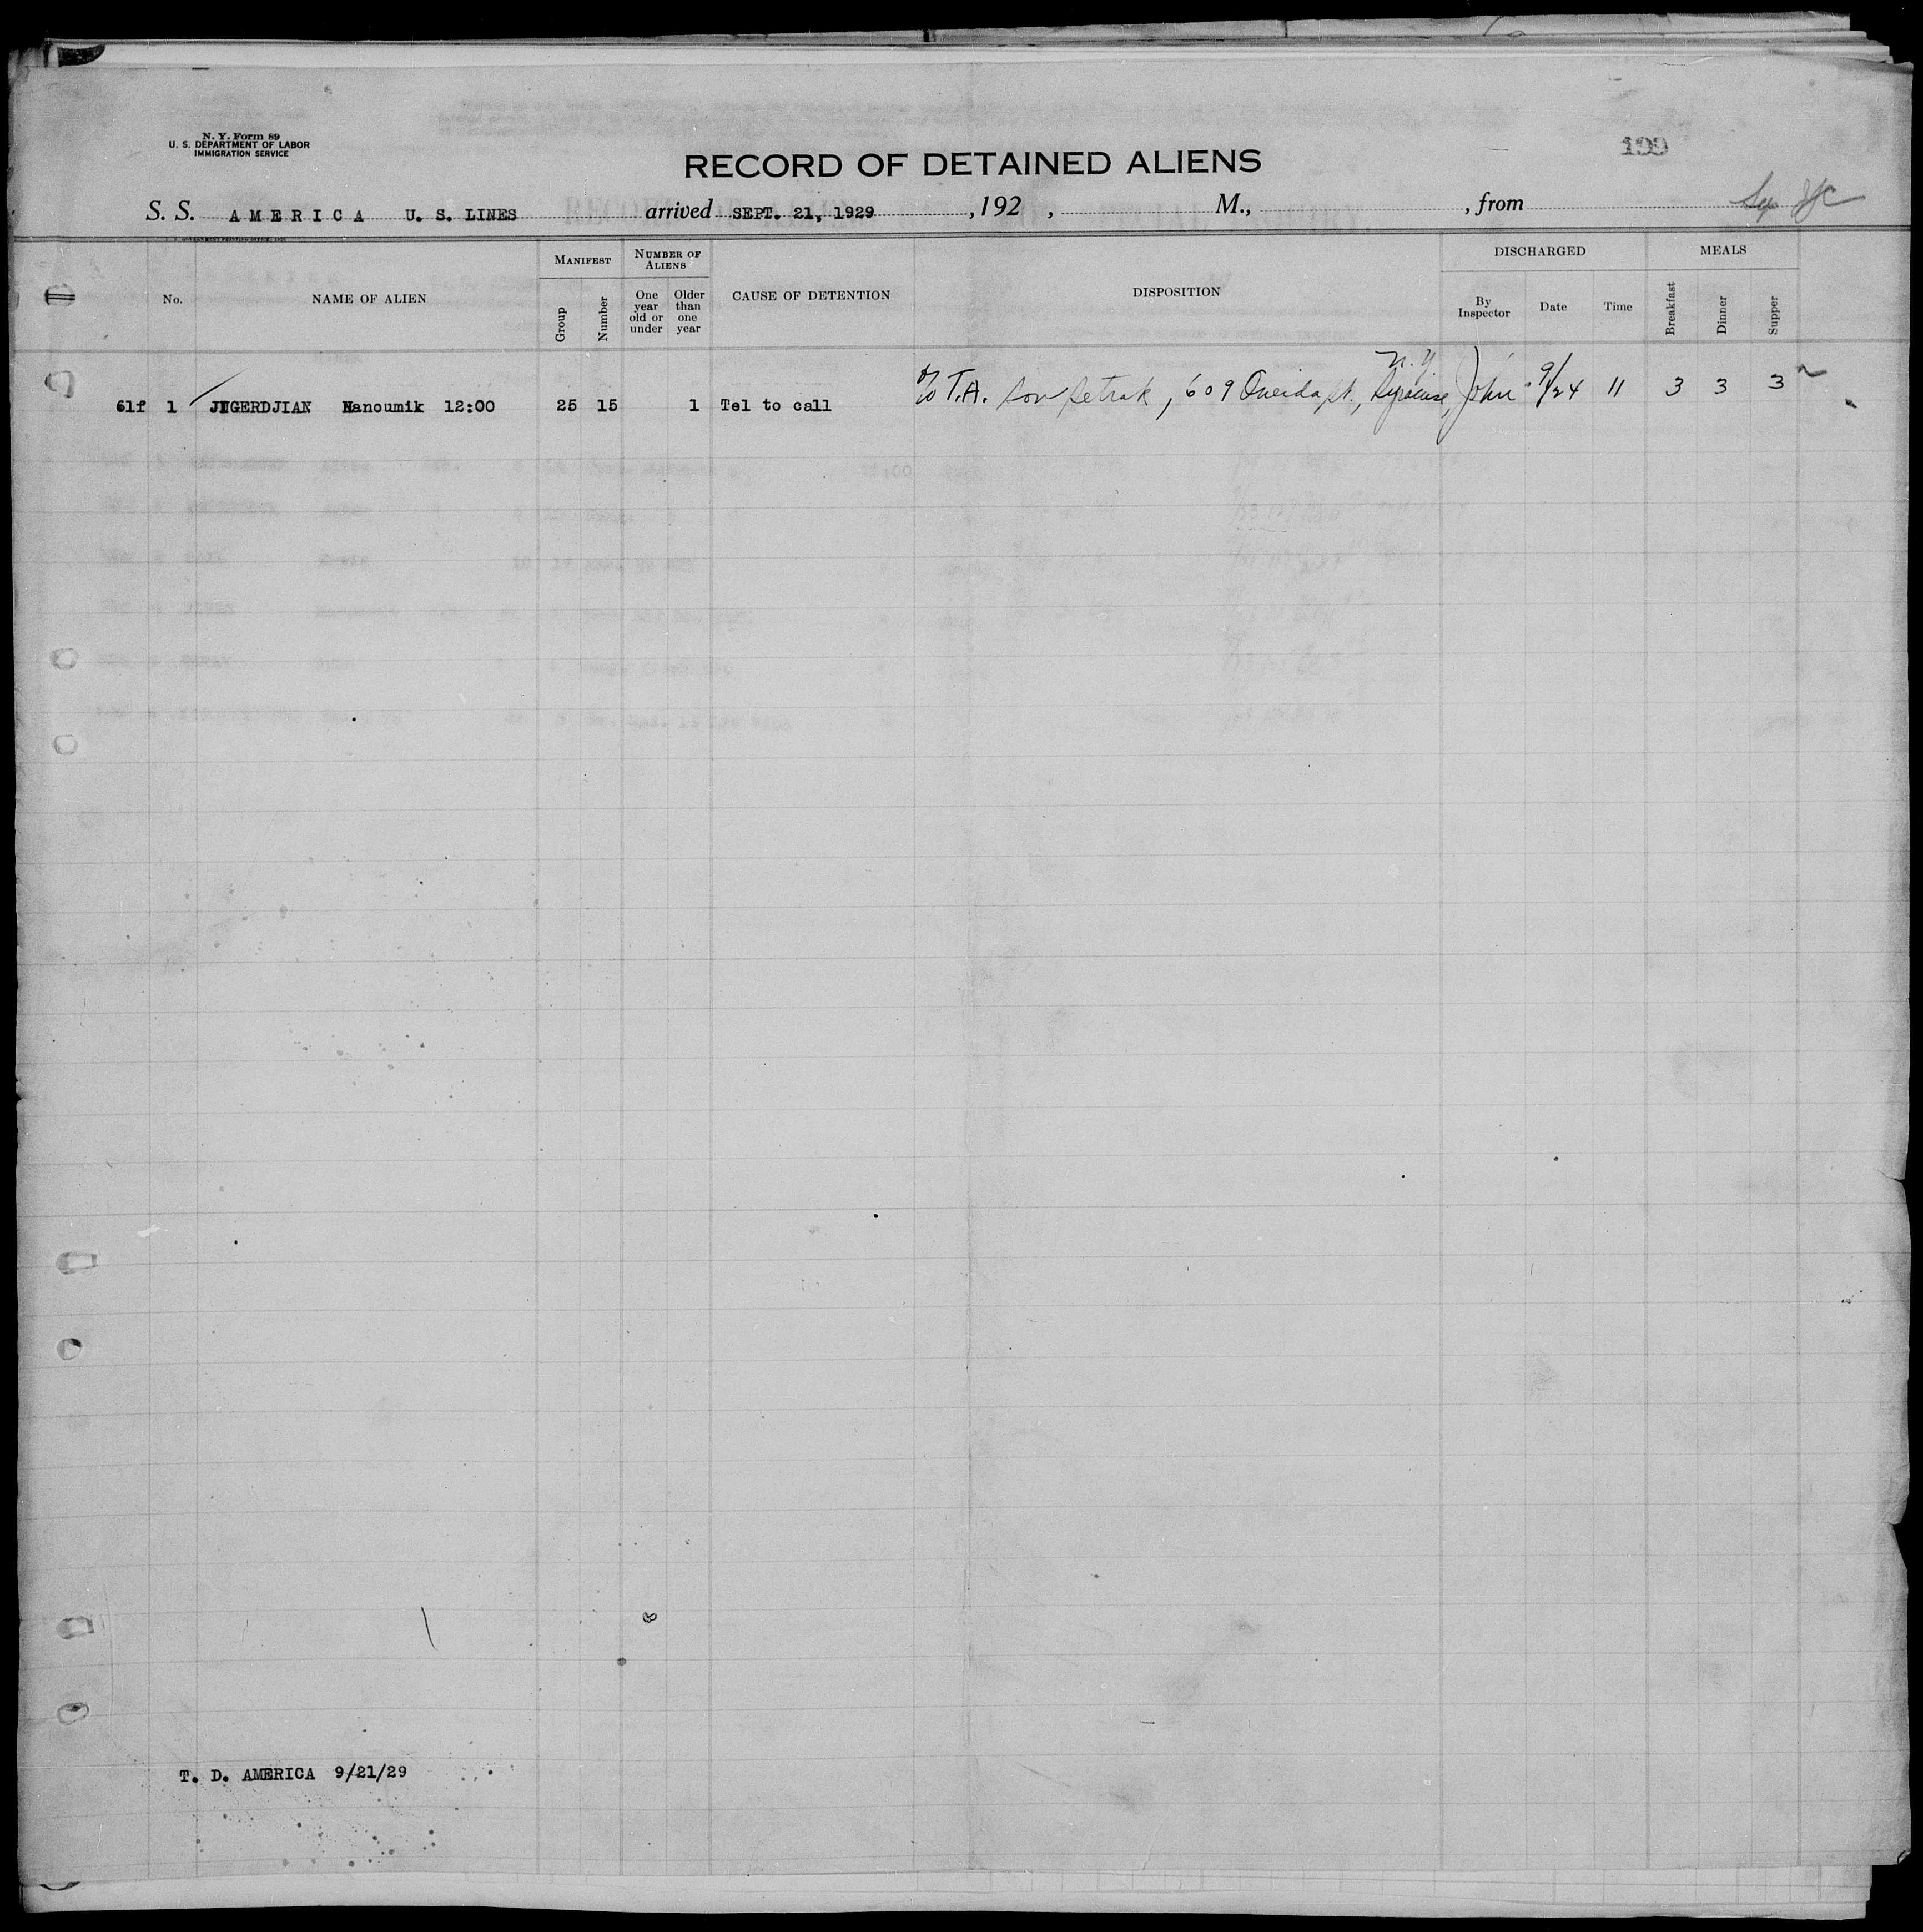 N. Y. Form 89
U. S. DEPARTMENT OF LABOR
IMMIGRATION SERVICE
199
RECORD OF DETAINED ALIENS
S. S. AMERICA U. S. LINES arrived SEPT. 21, 1929 , 192 , M., , from
MANIFEST NUMBER OF ALIENS DISCHARGED MEALS
No. NAME OF ALIEN Group Number One year old or under Older than one year CAUSE OF DETENTION DISPOSITION By Inspector Date Time Breakfast Dinner Supper
N.Y.
61f 1 JIGERDJIAN Hanoumik 12:00 25 15 1 Tel to call % T.A. son Petrak, 609 Oneida St., Syracuse, John 9/24 11 3 3 3
T. D. AMERICA 9/21/29